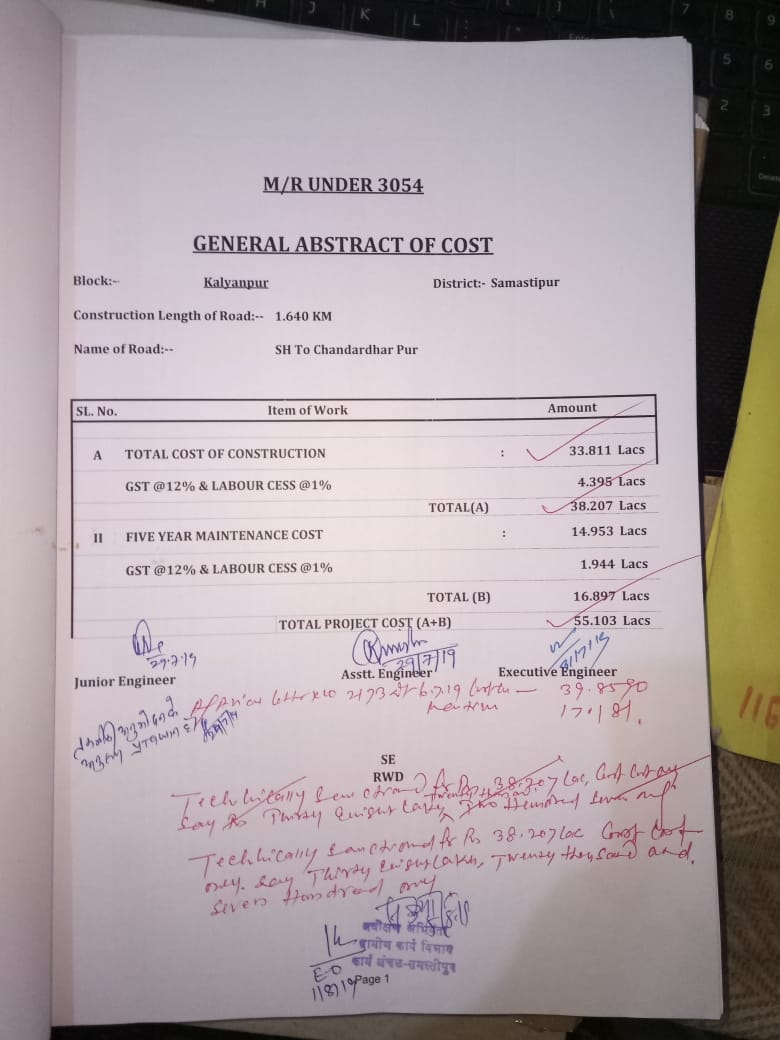 M/R UNDER 3054
GENERAL ABSTRACT OF COST
Block:-- Kalyanpur District:- Samastipur
Construction Length of Road:-- 1.640 KM
Name of Road:-- SH To Chandardhar Pur
SL. No. Item of Work Amount
A TOTAL COST OF CONSTRUCTION : 33.811 Lacs
GST @12% & LABOUR CESS @1% 4.395 Lacs
TOTAL(A) 38.207 Lacs
II FIVE YEAR MAINTENANCE COST : 14.953 Lacs
GST @12% & LABOUR CESS @1% 1.944 Lacs
TOTAL (B) 16.897 Lacs
TOTAL PROJECT COST (A+B) 55.103 Lacs
29.7.19 29/7/19
Junior Engineer Asstt. Engineer Executive Engineer
39.8590
17.181
SE
RWD
Technically Rs 38.207 Lac
say Rs Thirty Lakh, Two Hundred Seven only
Technically Sanctioned for Rs 38.207 Lac Const Cost
only. Say Thirty Lakh, Twenty thousand and
Seven Hundread only
अधीक्षण अभियंता
ग्रामीण कार्य विभाग
कार्य अंचल-समस्तीपुर
1/8/19
Page 1
116